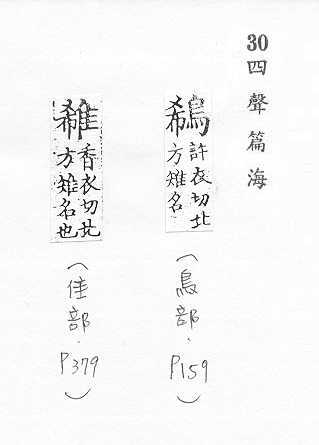 30 四聲篇海
鵗
許衣切北
方雉名
(鳥部.P159)
香衣切北
方雉名也
(佳部.P379)